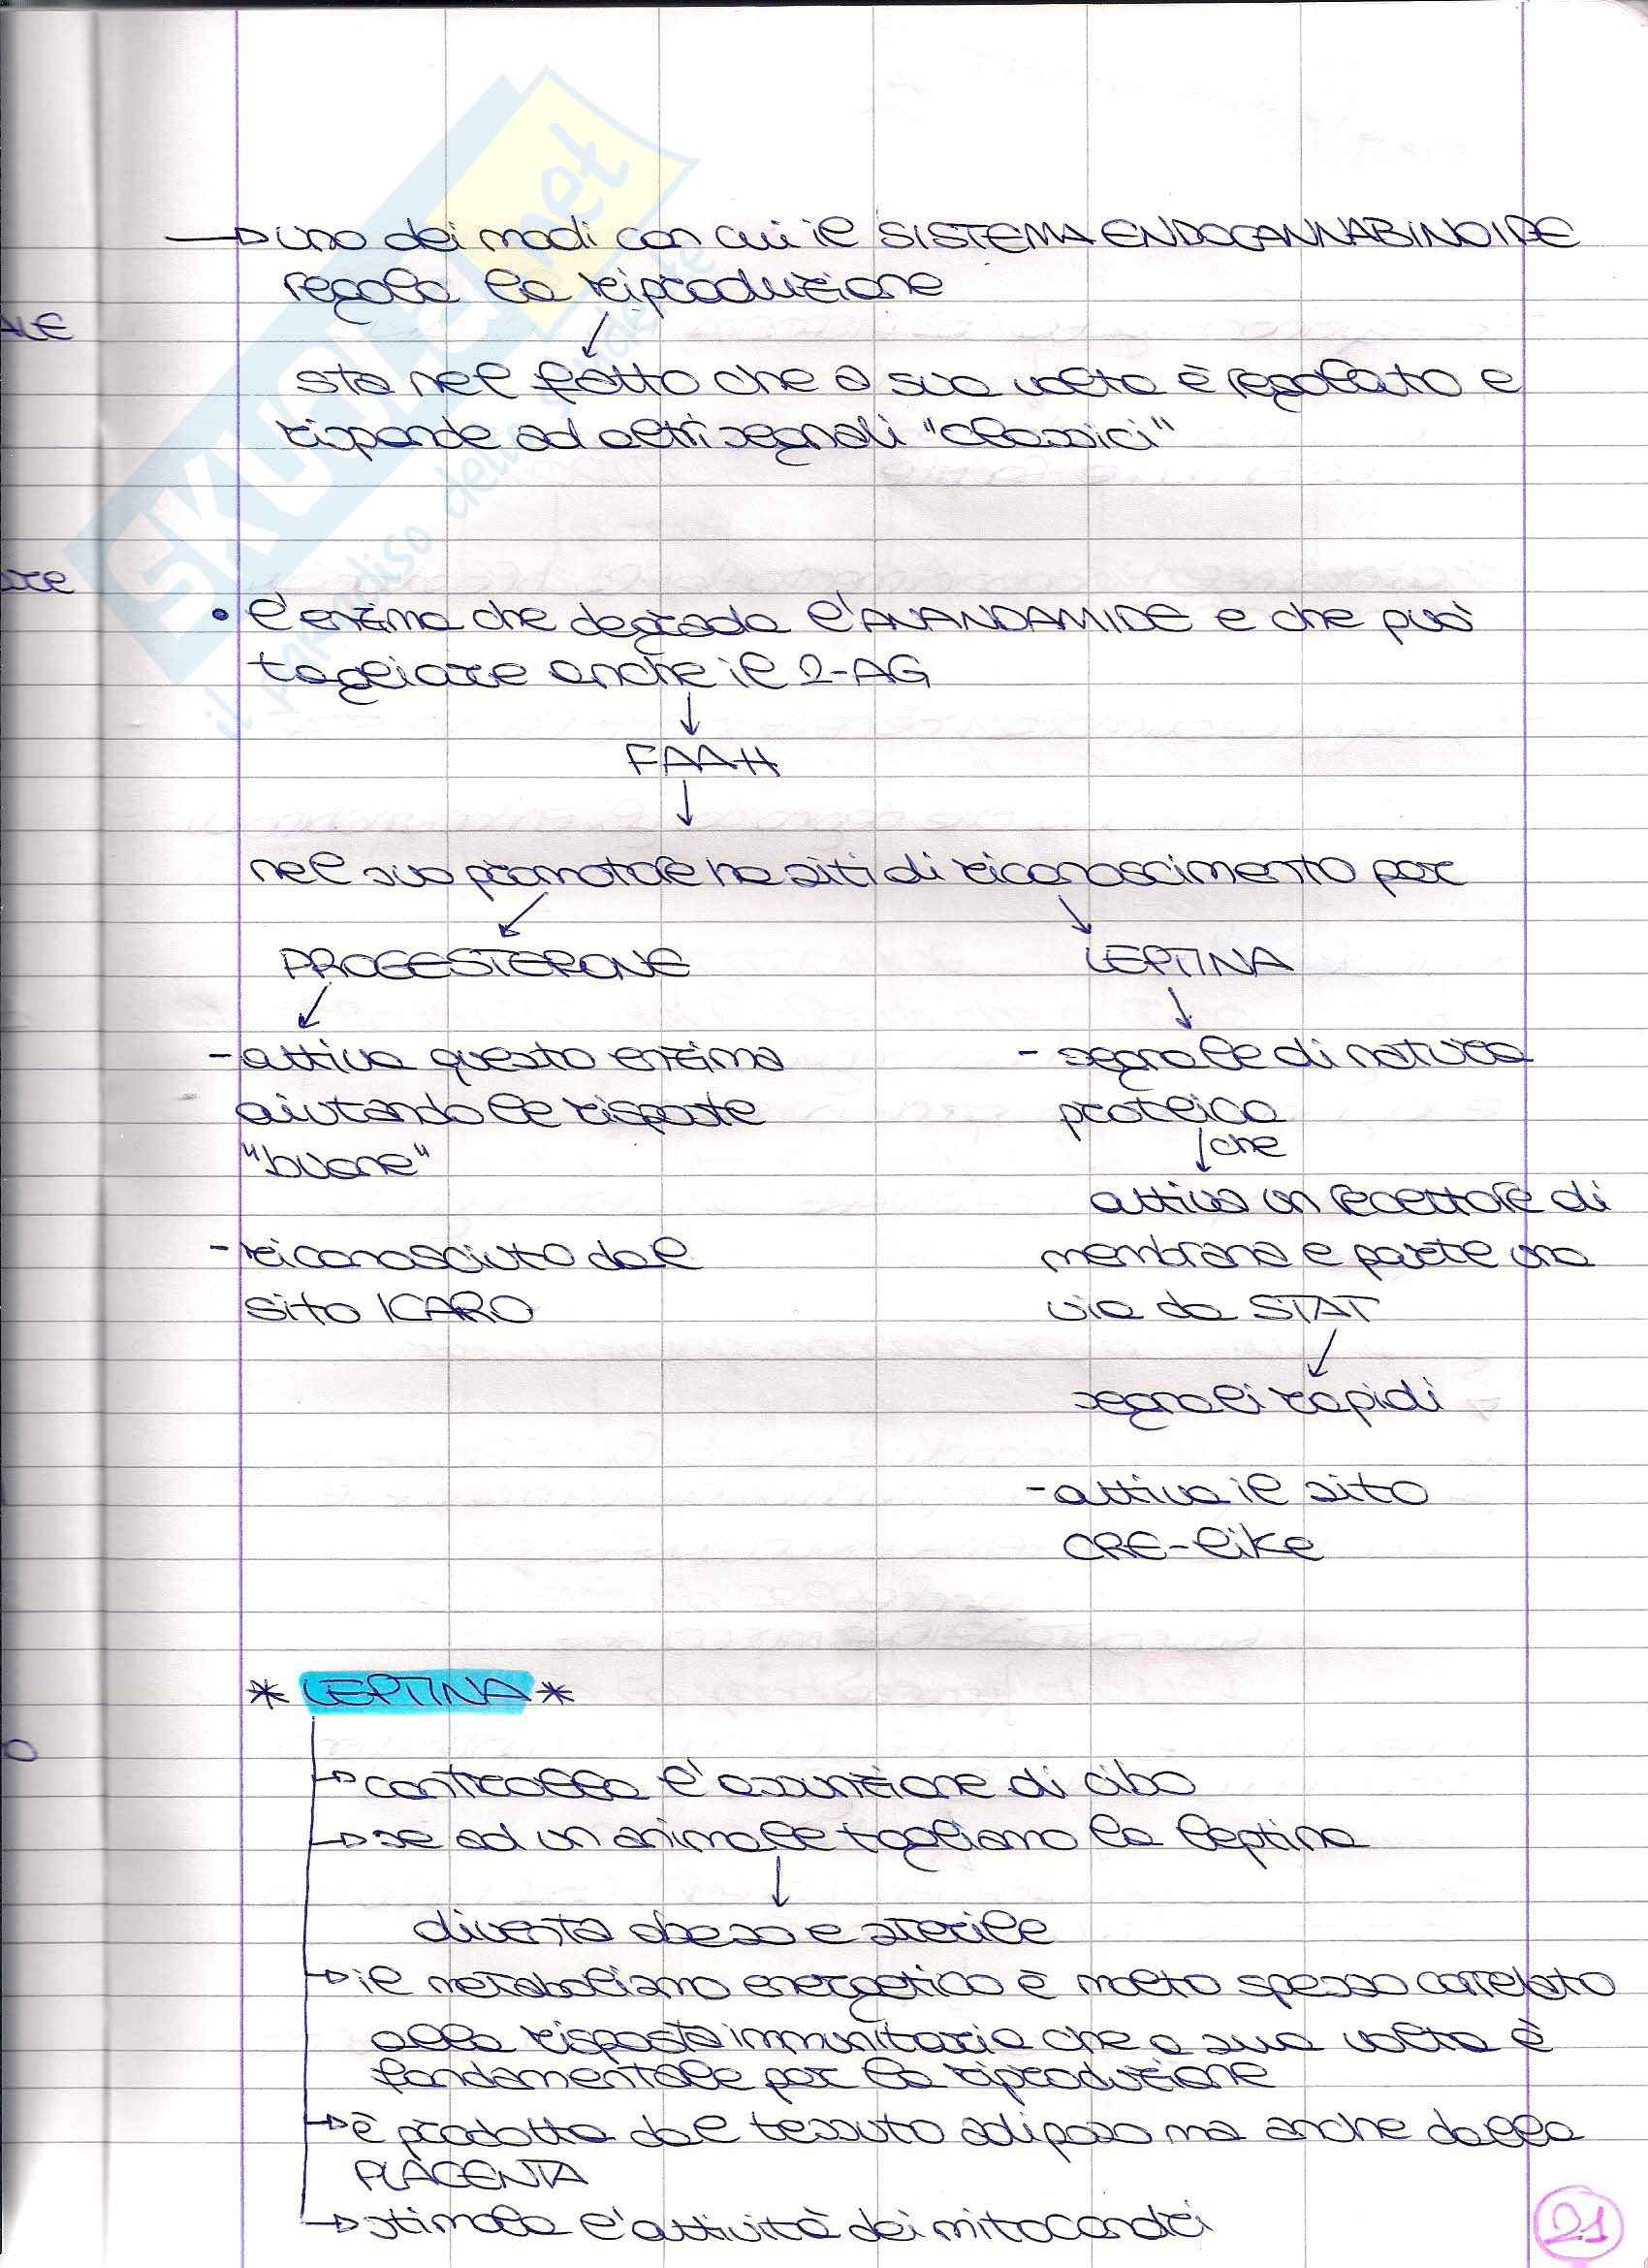 → uno dei modi con cui il SISTEMA ENDOCANNABINOIDE
regola la riproduzione
↓
sta nel fatto che a sua volta è regolato e
risponde ad altri segnali "classici"
• l'enzima che degrada l'ANANDAMIDE e che può
tagliare anche il 2-AG
↓
FAAH
↓
nel suo promotore ha siti di riconoscimento per
PROGESTERONE LEPTINA
- attiva questo enzima
aiutando le risposte
"buone"
- riconosciuto dal
sito ICARO
- segnale di natura
proteica
↓ che
attiva un recettore di
membrana e parte una
via da STAT
segnali rapidi
- attiva il sito
CRE-like
* LEPTINA *
→ controlla l'assunzione di cibo
→ se ad un animale togliamo la leptina
↓
diventa obeso e sterile
→ il metabolismo energetico è molto spesso correlato
alla risposta immunitaria che a sua volta è
fondamentale per la riproduzione
→ è prodotta dal tessuto adiposo ma anche dalla
PLACENTA
→ stimola l'attività dei mitocondri
21
ALE
are
o
SKUOLA.net
il paradiso dello studente